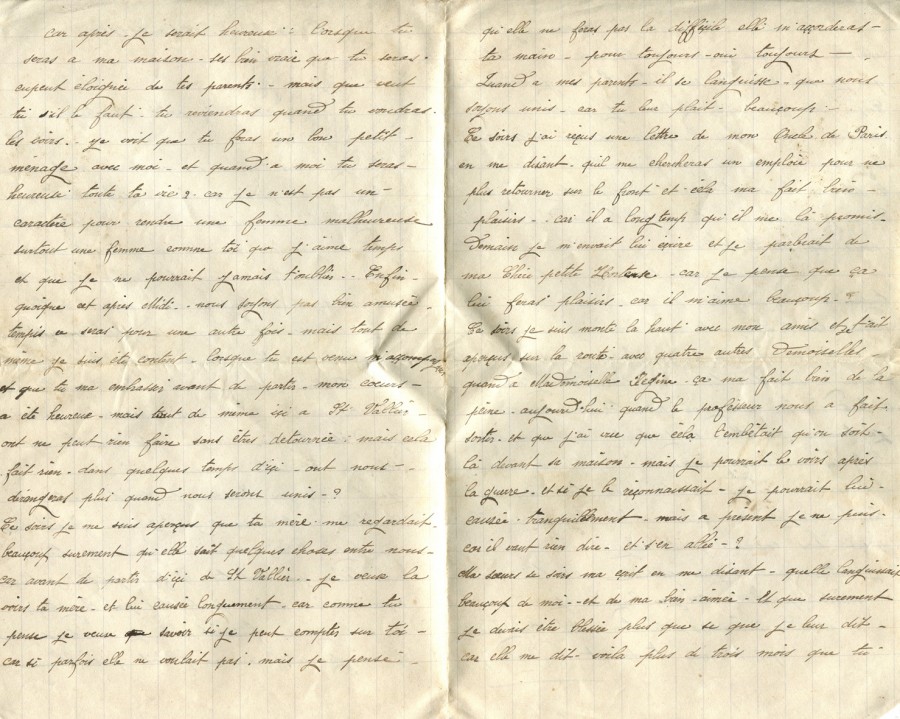 car après je serait heureux : lorsque tu
seras a ma maison - ses bien vraie que tu seras
eupeut éloignée de tes parents - mais que veut
tu s'il le faut - tu reviendras quand tu voudras
les soirs - je voit que tu fras un bon petit -
ménage avec moi - et quand a moi tu seras -
heureuse toute ta vie ? car je n'est pas un -
caractère pour rendre une femme malheureuse
surtout une femme comme toi que j'aime temps
et que je ne pourrait jamais t'oublier - Enfin -
quoique cet après Midi - nous soyons pas bien amusée -
tempis ce seras pour une autre fois - mais tout de
même je suis été content - lorsque tu est venue m'accompagner
et que tu ma embrasser avant de partir - mon coeurs -
a été heureux - mais tout de même içi a St Vallier -
ont ne peut rien faire sans êtres detournée : mais cela
fait rien - dans quelques temps d'içi - ont nous -
dérangeras plus quand nous serons unis - ?
Ce soirs je me suis aperçus que ta mère me regardait
beaucoup surement qu'elle sait quelques choses entre nous -
car avant de partir d'içi de St Vallier - je veux la
voirs ta mère - et lui causée longuement - car comme tu
pense je veux savoir si je peut compter sur toi -
car si parfois elle ne voulait pas, mais je pense -
qu'elle ne feras pas la difficile elle m'accorderas -
ta main - pour toujours - oui toujours -
Quand a mes parents - il se languisse - que nous
soyons unis - car tu leur plait - beaucoup -
Ce soirs j'ai reçus une lettre de mon Oncle de Paris
en me disant - qu'il me chercheras un emploie pour ne
plus retourner sur le front et cèla ma fait bien -
plaisirs - car il a longtemp qu'il me là promis -
Demain je m'envait lui écrire et je parlerait de
ma Chère petite - car je pense que ça
lui feras plaisirs - car il m'aime beaucoup - ?
Ce soirs je suis monté la haut avec mon amis et t'ait
aperçus sur la route - avec quatre autres Demoiselles -
quand a Mademoiselle - ça ma fait bien de la
peine - aujourd'hui quand le profèsseur nous a fait
sortir - et que j'ai vue que cèla t'embêtait qu'on soit -
là devant sa maison - mais je pourrait le voirs après
la guerre - et si je le reconnaissait - je pourrait lui -
causée tranquillement - mais a présent je ne puis -
car il veut rien dire - et s'en allée - ?
Ma soeurs ce soirs ma ecrit en me disant - quelle languissait
beaucoup de moi - et de ma bien-aimée - Et que surement
je devais être blessée plus que se que je leur dit -
car elle me dit - voila plus de trois mois que tu -